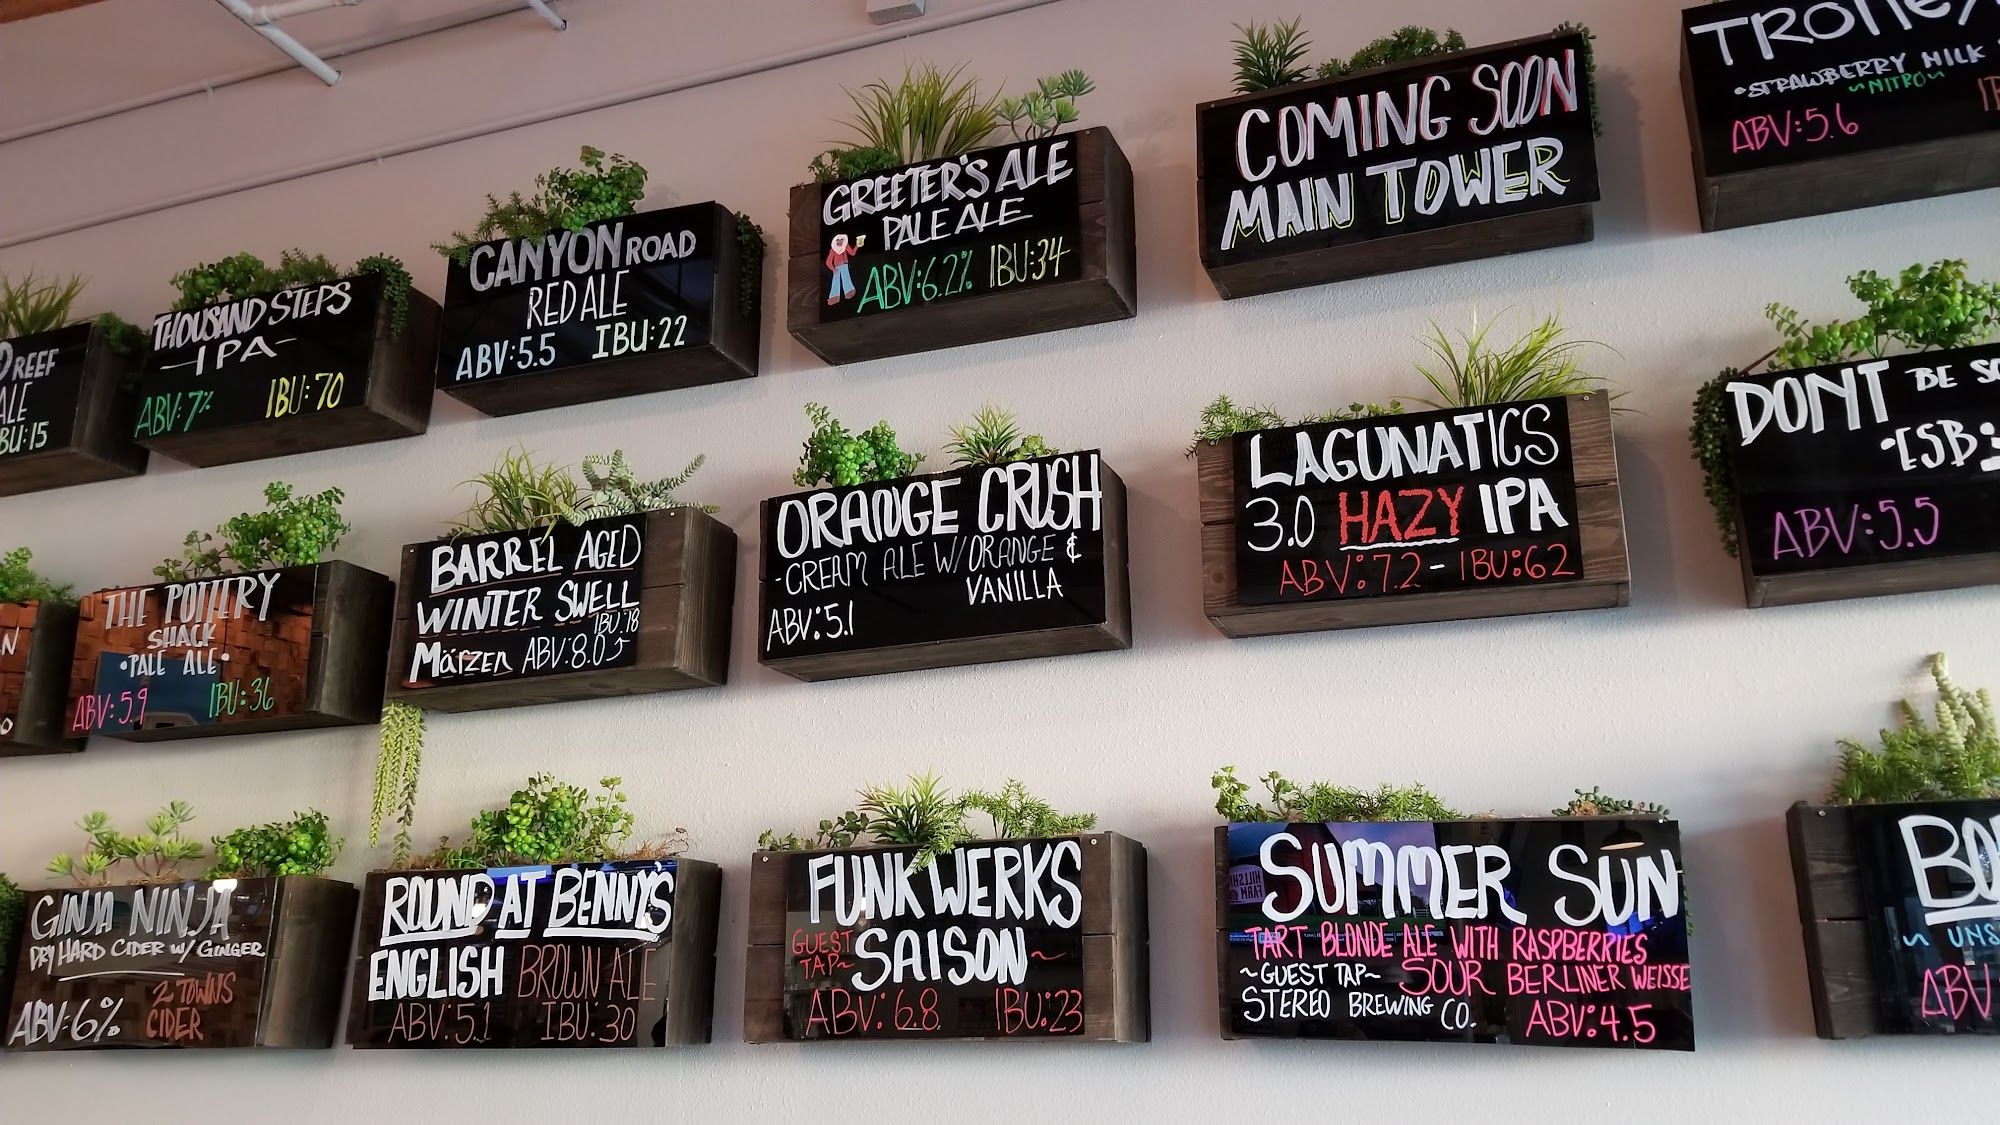 REEF
ALE
IBU:15
THOUSAND STEPS
-IPA-
ABV:7% IBU:70
CANYON ROAD
RED ALE
ABV:5.5 IBU:22
GREETER'S ALE
PALE ALE
ABV:6.2% IBU:34
COMING SOON
MAIN TOWER
TROLLEY
•STRAWBERRY MILK
~NITRO~
ABV:5.6
THE POTTERY
SHACK
•PALE ALE•
ABV:5.9 IBU:36
BARREL AGED
WINTER SWELL
IBU:18
Märzen ABV:8.0
ORANGE CRUSH
-CREAM ALE W/ORANGE &
VANILLA
ABV:5.1
LAGUNATICS
3.0 HAZY IPA
ABV:7.2 - IBU:62
DON'T BE
•ESB•
ABV:5.5
GINJA NINJA
DRY HARD CIDER W/ GINGER
2 TOWNS
ABV:6% CIDER
ROUND AT BENNY'S
ENGLISH BROWN ALE
ABV:5.1 IBU:30
FUNK WERKS
GUEST
TAP~ SAISON~
ABV:6.8 IBU:23
SUMMER SUN
TART BLONDE ALE WITH RASPBERRIES
~GUEST TAP~ SOUR BERLINER WEISSE
STEREO BREWING CO. ABV:4.5
ABV